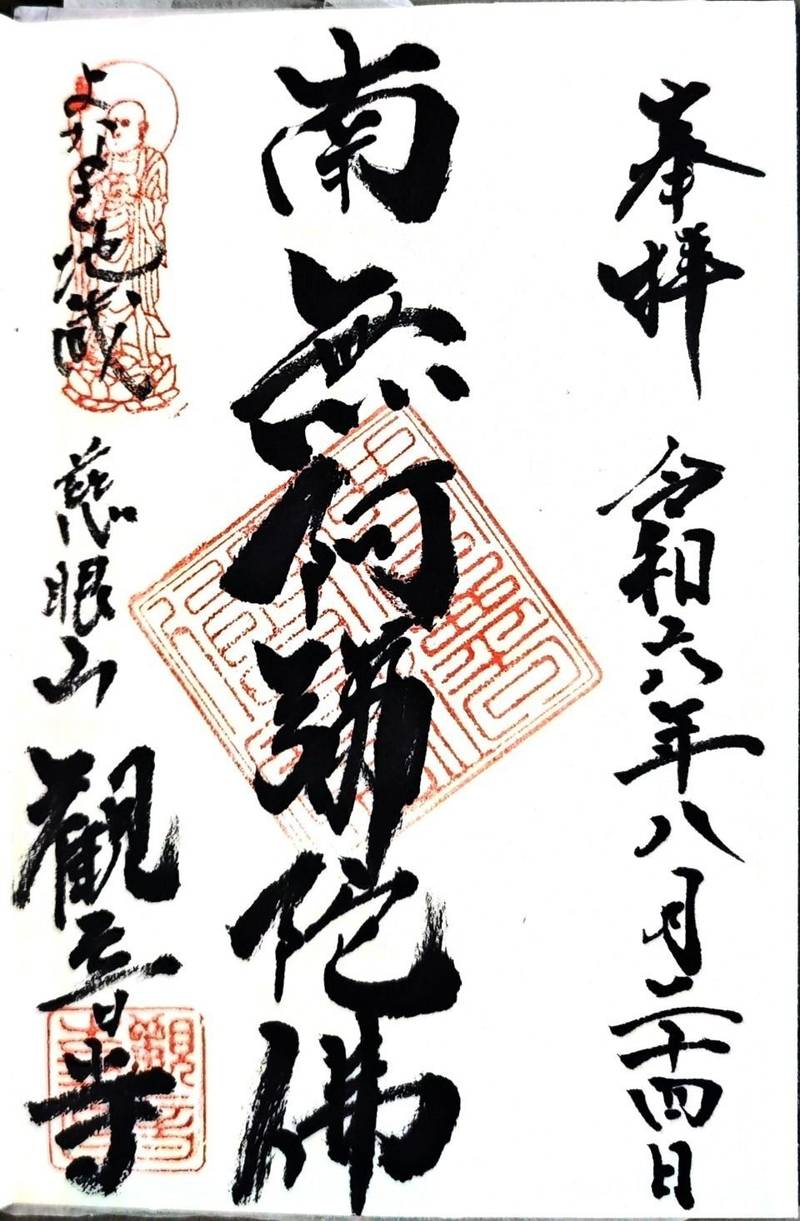 奉拝 令和六年八月二十四日
南無阿弥陀佛
よなき地蔵 慈眼山 観音寺